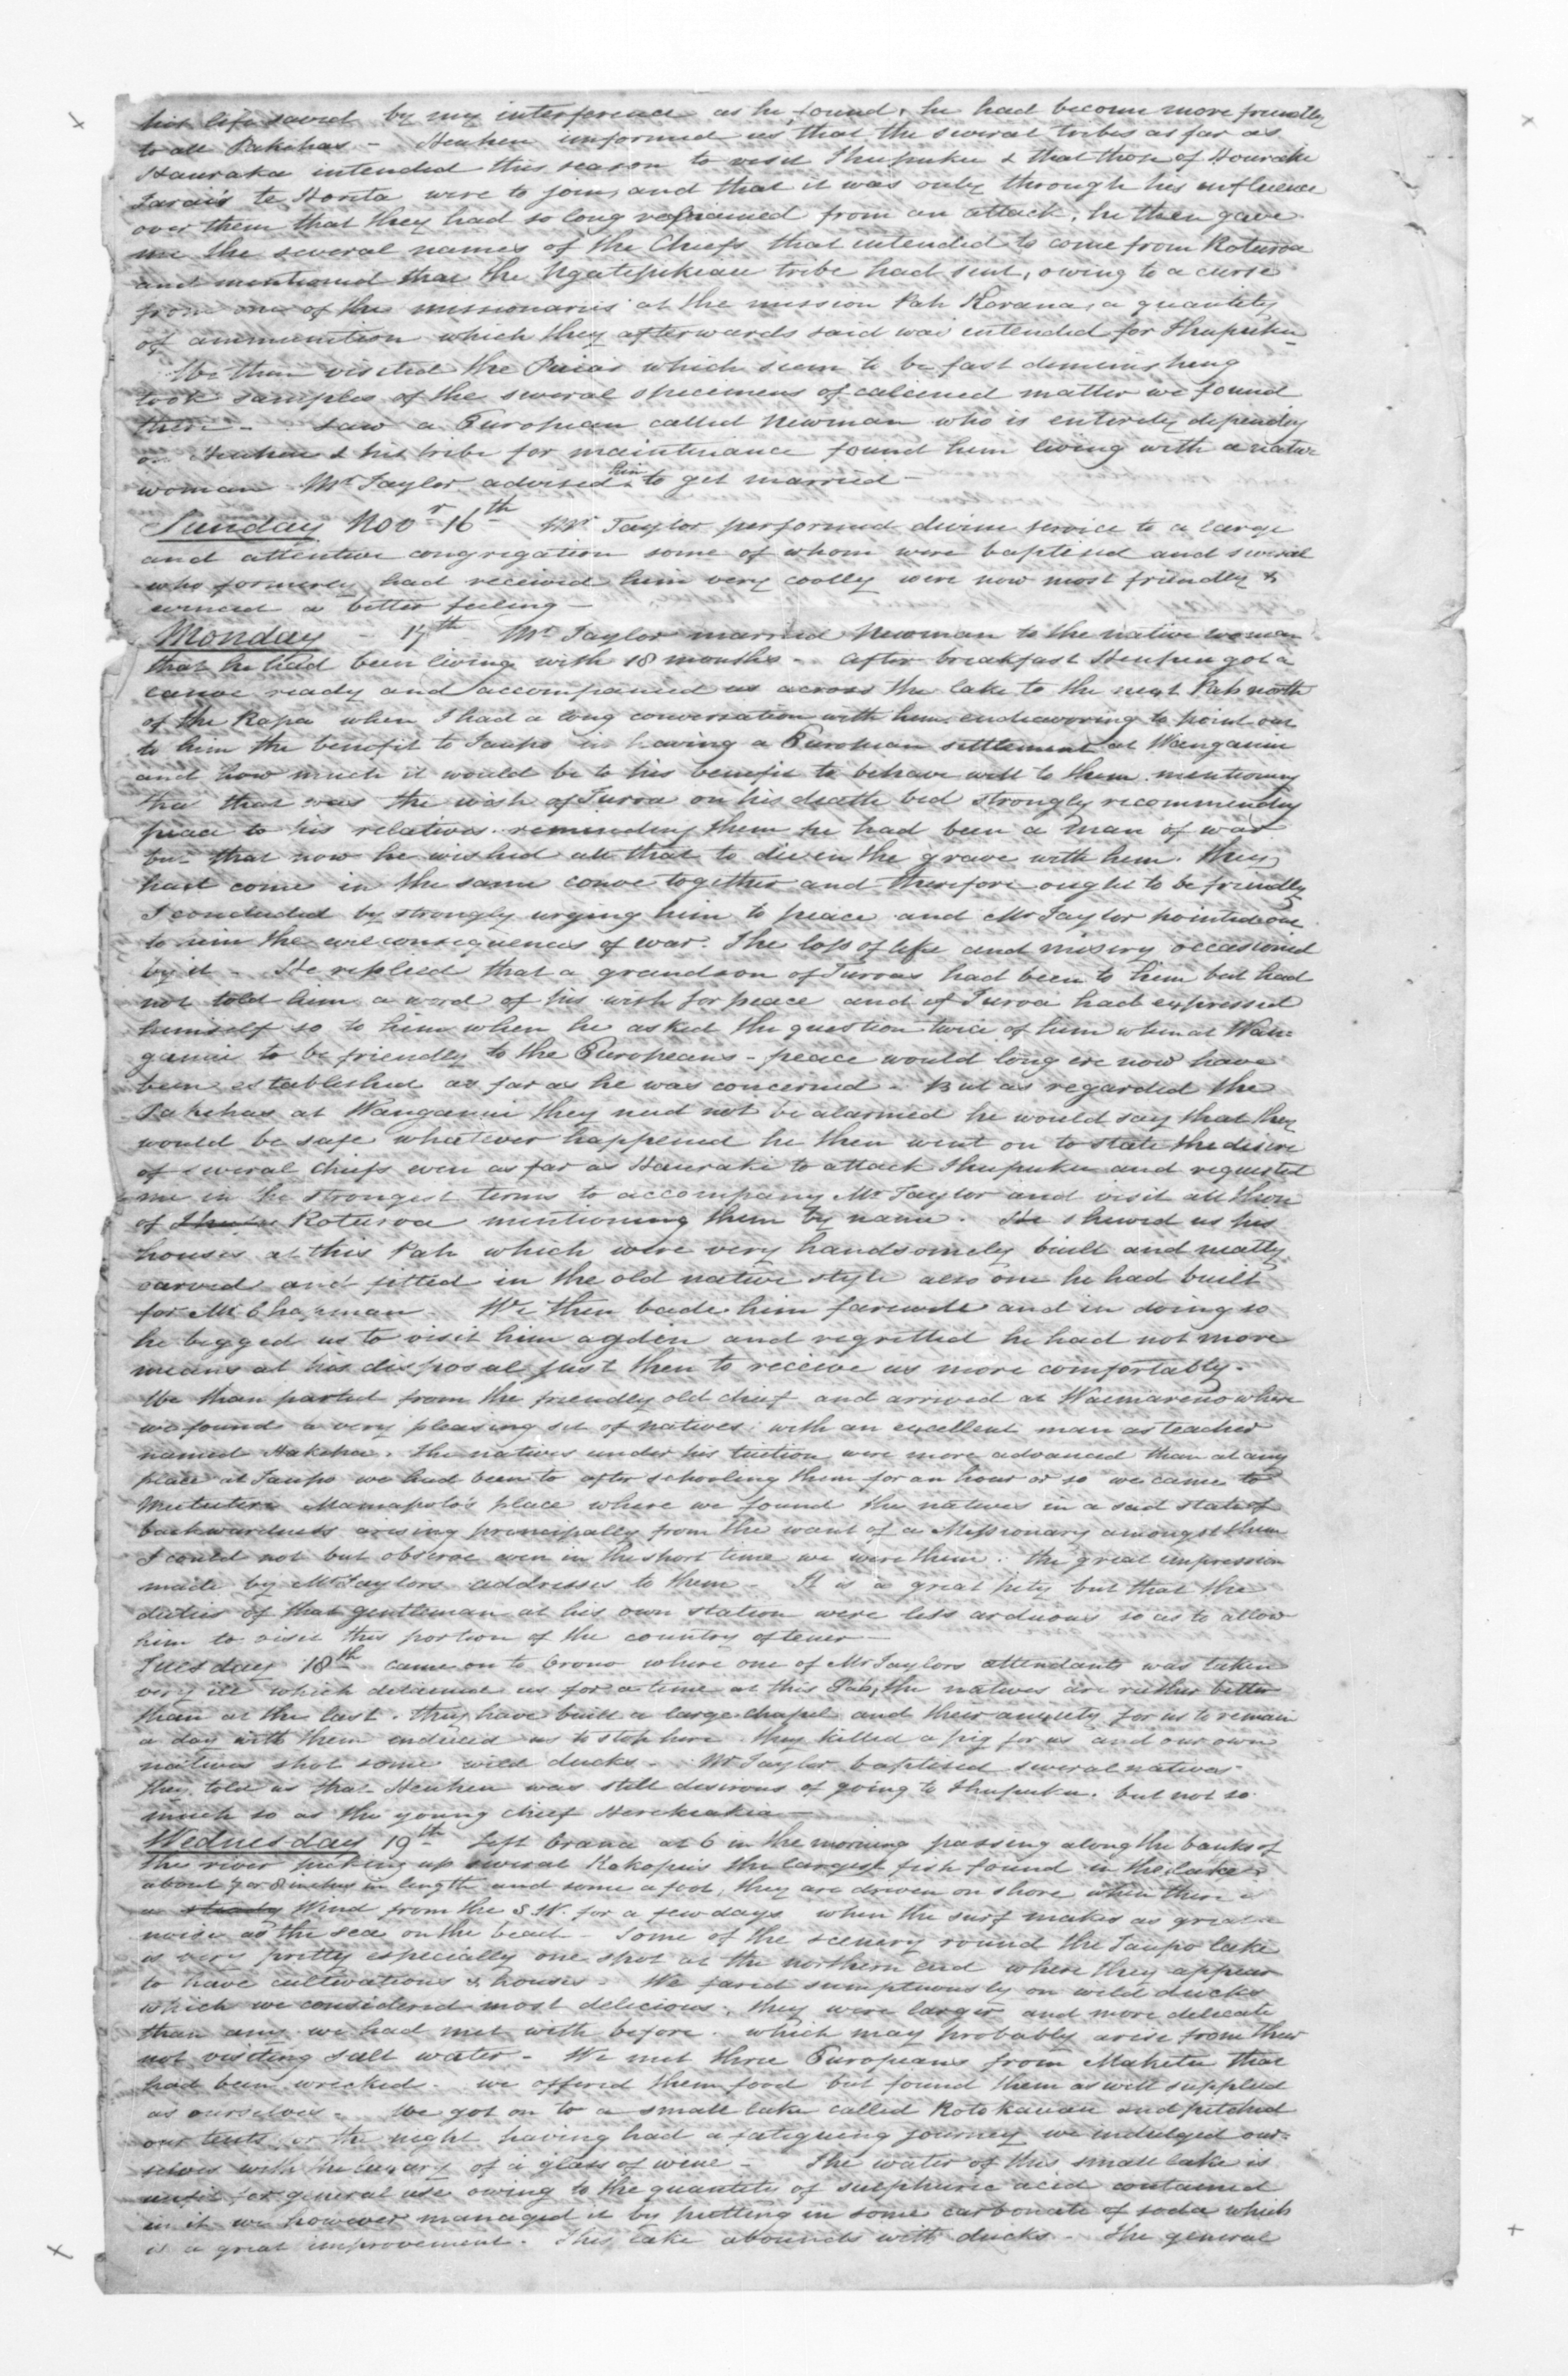 his life saved by my interference as he found, he had become more friendly
to all Pakehas - Heuheu informed us that the several tribes as far as
Hauraka intended this season to visit Ihupuku & that those of Houraki
Tarai's te Horita were to join, and that it was only through his influence
over them that they had so long refrained from an attack, he then gave
me the several names of the Chiefs that intended to come from Roturoa
and mentioned that the Ngatipikiau tribe had sent, owing to a curse
from one of the missionaries at the mission Pah Korana, a quantity
of ammunition which they afterwards said was intended for Ihupuku -
We then visited the Puias which seem to be fast deminishing
took samples of the several specimens of calcined matter we found
there - Saw a European called Newman who is entirely depending
on Heuheu & his tribe for maintenance found him living with a native
woman Mr Taylor advised him to get married -
Sunday Novr 16th Mr Taylor performed divine service to a large
and attentive congregation some of whom were baptised and several
who formerly had received him very coolly were now most friendly &
evinced a better feeling -
Monday - 17th Mr Taylor married Newman to the native woman
that he had been living with 18 months - After breakfast Heuheu got a
canoe ready and accompanied us across the lake to the next Pah north
of the Rapa when I had a long conversation with him endeavoring to point out
to him the benefit to Taupo in having a European settlement at Wanganui
and how much it would be to his benefit to behave well to them mentioning
that that was the wish of Turoa on his death bed strongly recommending
peace to his relatives reminding them he had been a man of war
but that now he wished all that to die in the grave with him. They
had come in the same canoe together and therefore ought to be friendly
I concluded by strongly urging him to peace and Mr Taylor pointed out
to him the evil consequences of war. The loss of life and misery occasioned
by it - He replied that a grandson of Turoas had been to him but had
not told him a word of his wish for peace and if Turoa had expressed
himself so to him when he asked the question twice of him when at Wan-
ganui to be friendly to the Europeans - peace would long ere now have
been established as far as he was concerned - But as regarded the
Pakehas at Wanganui they need not be alarmed he would say that they
would be safe whatever happened he then went on to state the desire
of several chiefs even as far as Hauraki to attack Ihupuku and requested
me in the strongest terms to accompany Mr Taylor and visit all those
of Roturoa mentioning them by name. He shewed us his
houses at this Pah which were very handsomely built and neatly
carved and fitted in the old native style also one he had built
for Mr Chapman We then bade him farewell and in doing so
he begged us to visit him again and regretted he had not more
means at his disposal just then to receive us more comfortably.
We than parted from the friendly old chief and arrived at Waimareno where
we found a very pleasing set of natives with an excellent man as teacher
named Hakiha. The natives under his tuition were more advanced than at any
place at Taupo we had been to after schooling them for an hour or so we came to
Mamapoto's place where we found the natives in a sad state of
backwardness arising principally from the want of a Missionary amongst them
I could not but observe even in the short time we were there the great impression
made by Mr Taylors addresses to them - It is a great pity but that the
duties of that gentleman at his own station were less arduous so as to allow
him to visit this portion of the country oftener -
Tuesday 18th came on to Orono where one of Mr Taylors attendants was taken
very ill which detained us for a time at this Pah, the natives are rather better
than at the last. they have built a large chapel and their anxiety for us to remain
a day with them induced us to stop here they killed a pig for us and our own
natives shot some wild ducks - Mr Taylor baptised several natives
they told us that Heuheu was still desirous of going to Ihupuku. but not so
much so as the young chief Herekeakia -
Wednesday 19th left Orana at 6 in the morning passing along the banks of
the river picking up several Kokopuis the largest fish found in the lake
about 7 or 8 inches in length and some a foot, they are driven on shore when there is
a steady Wind from the S.W. for a few days when the surf makes as great a
noise as the sea on the beach - Some of the scenery round the Taupo lake
is very pretty especially one spot at the northern end where they appear
to have cultivations & houses - We fared sumptuously on wild ducks
which we considered most delicious, they were larger and more delicate
than any we had met with before. which may probably arise from their
not visiting salt water - We met three Europeans from Maketu that
had been wrecked. we offered them food but found them as well supplied
as ourselves - We got on to a small lake called Rotokauau and pitched
our tents for the night having had a fatiguing journey we indulged our-
selves with the luxury of a glass of wine - The water of this small lake is
unfit for general use owing to the quantity of sulphuric acid contained
in it we however managed it by putting in some carbonate of soda which
is a great improvement. This lake abounds with ducks - The general